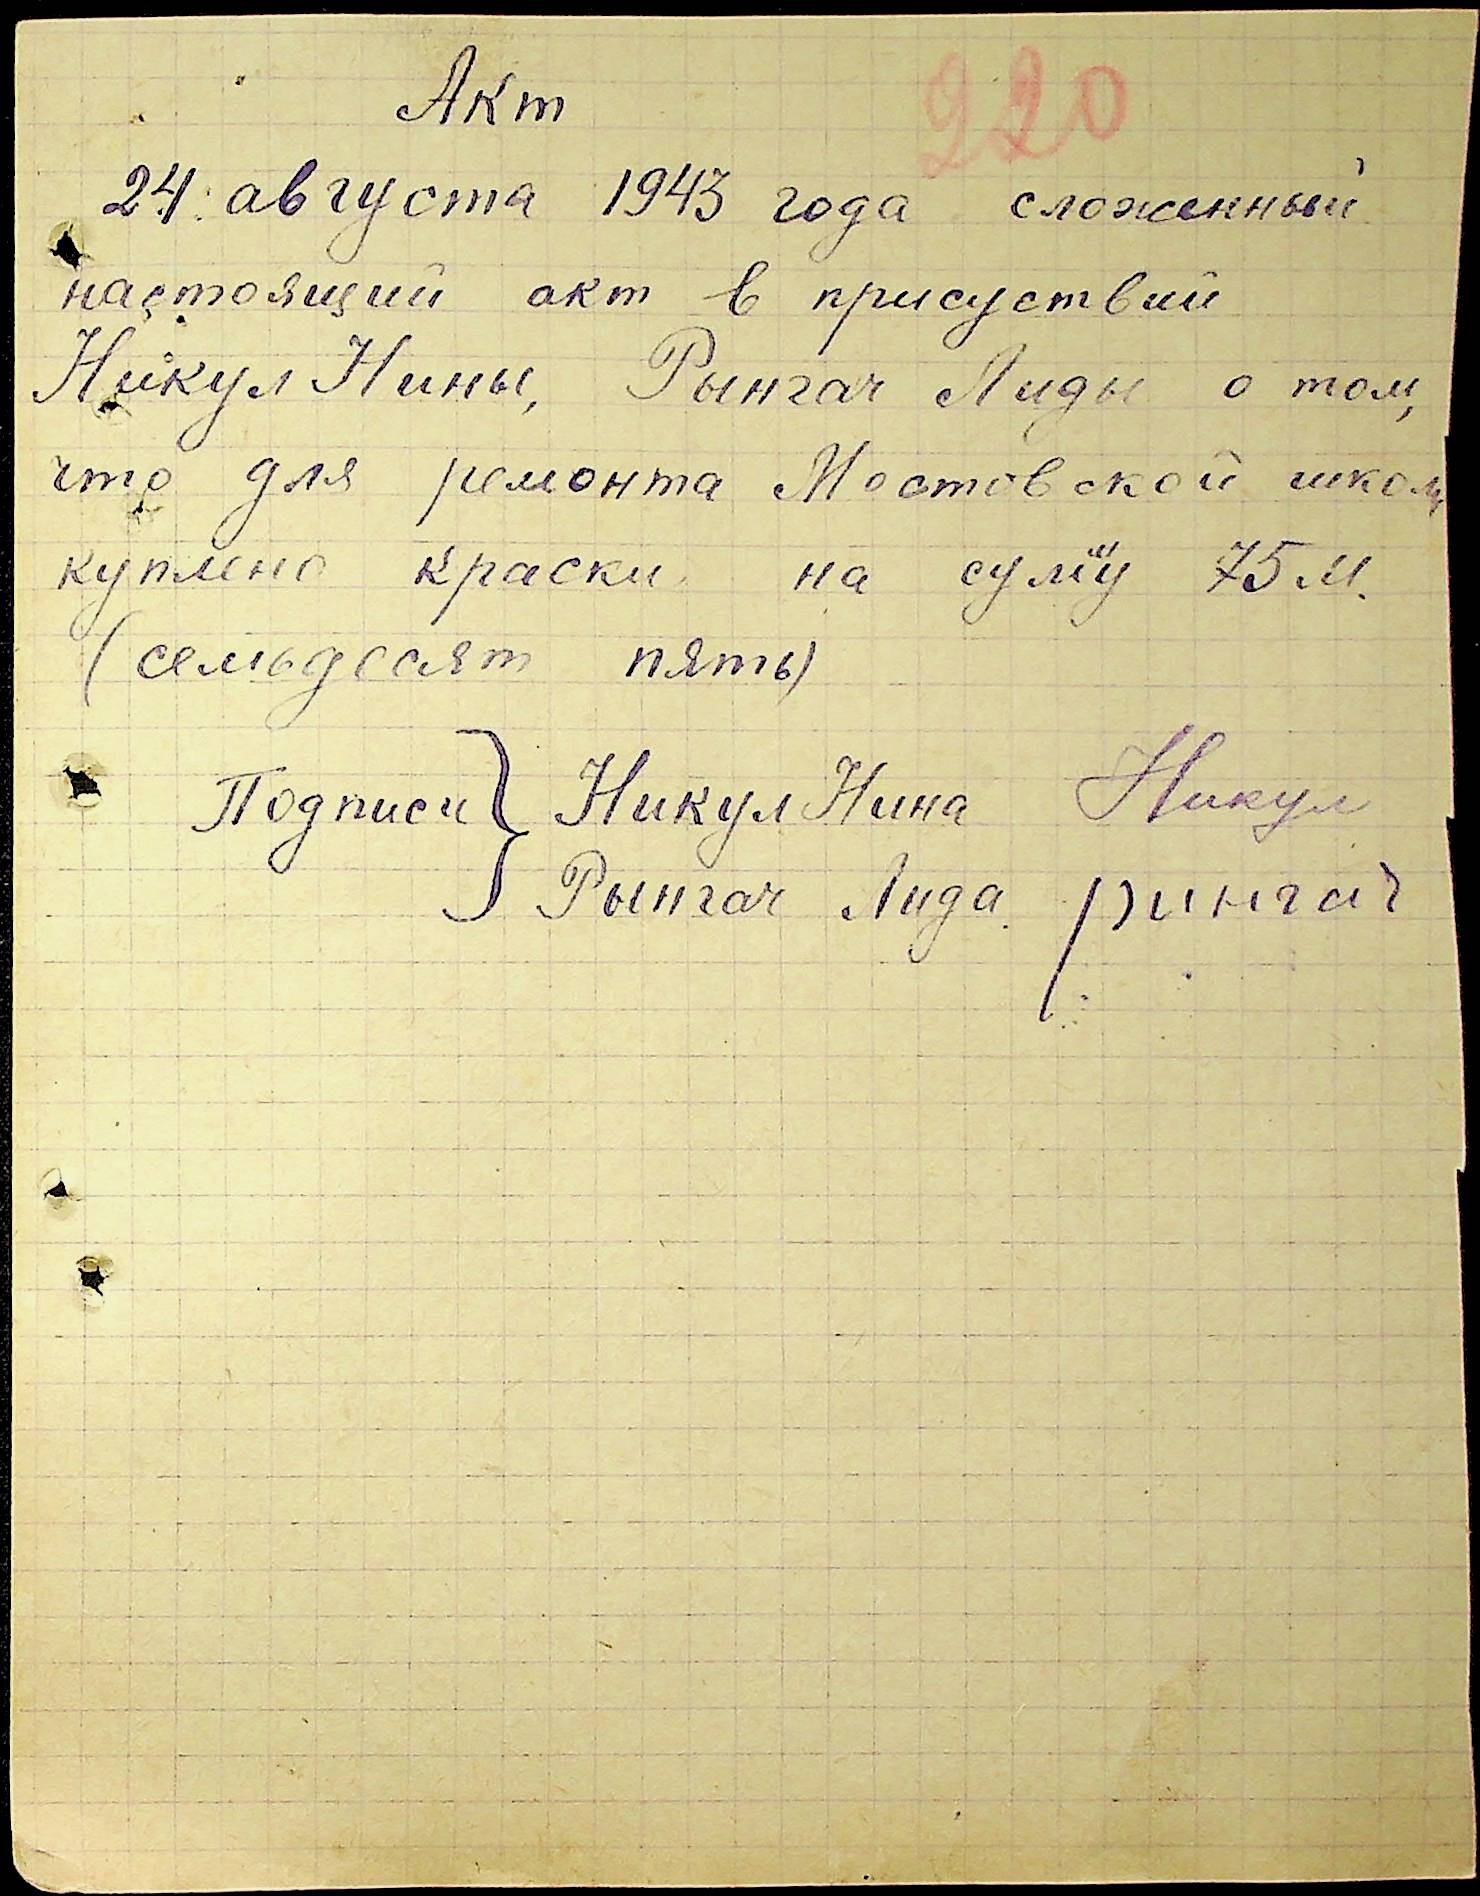 Акт
220
24 августа 1943 года сложенный
настоящий акт в присуствий
Никул Нины, Рынгач Лиды о том,
что для ремонта Мостовской школы
куплено краски на суму 75 м.
(семьдесят пять)
Подписи } Никул Нина Никул
Рынгач Лида. Рингач